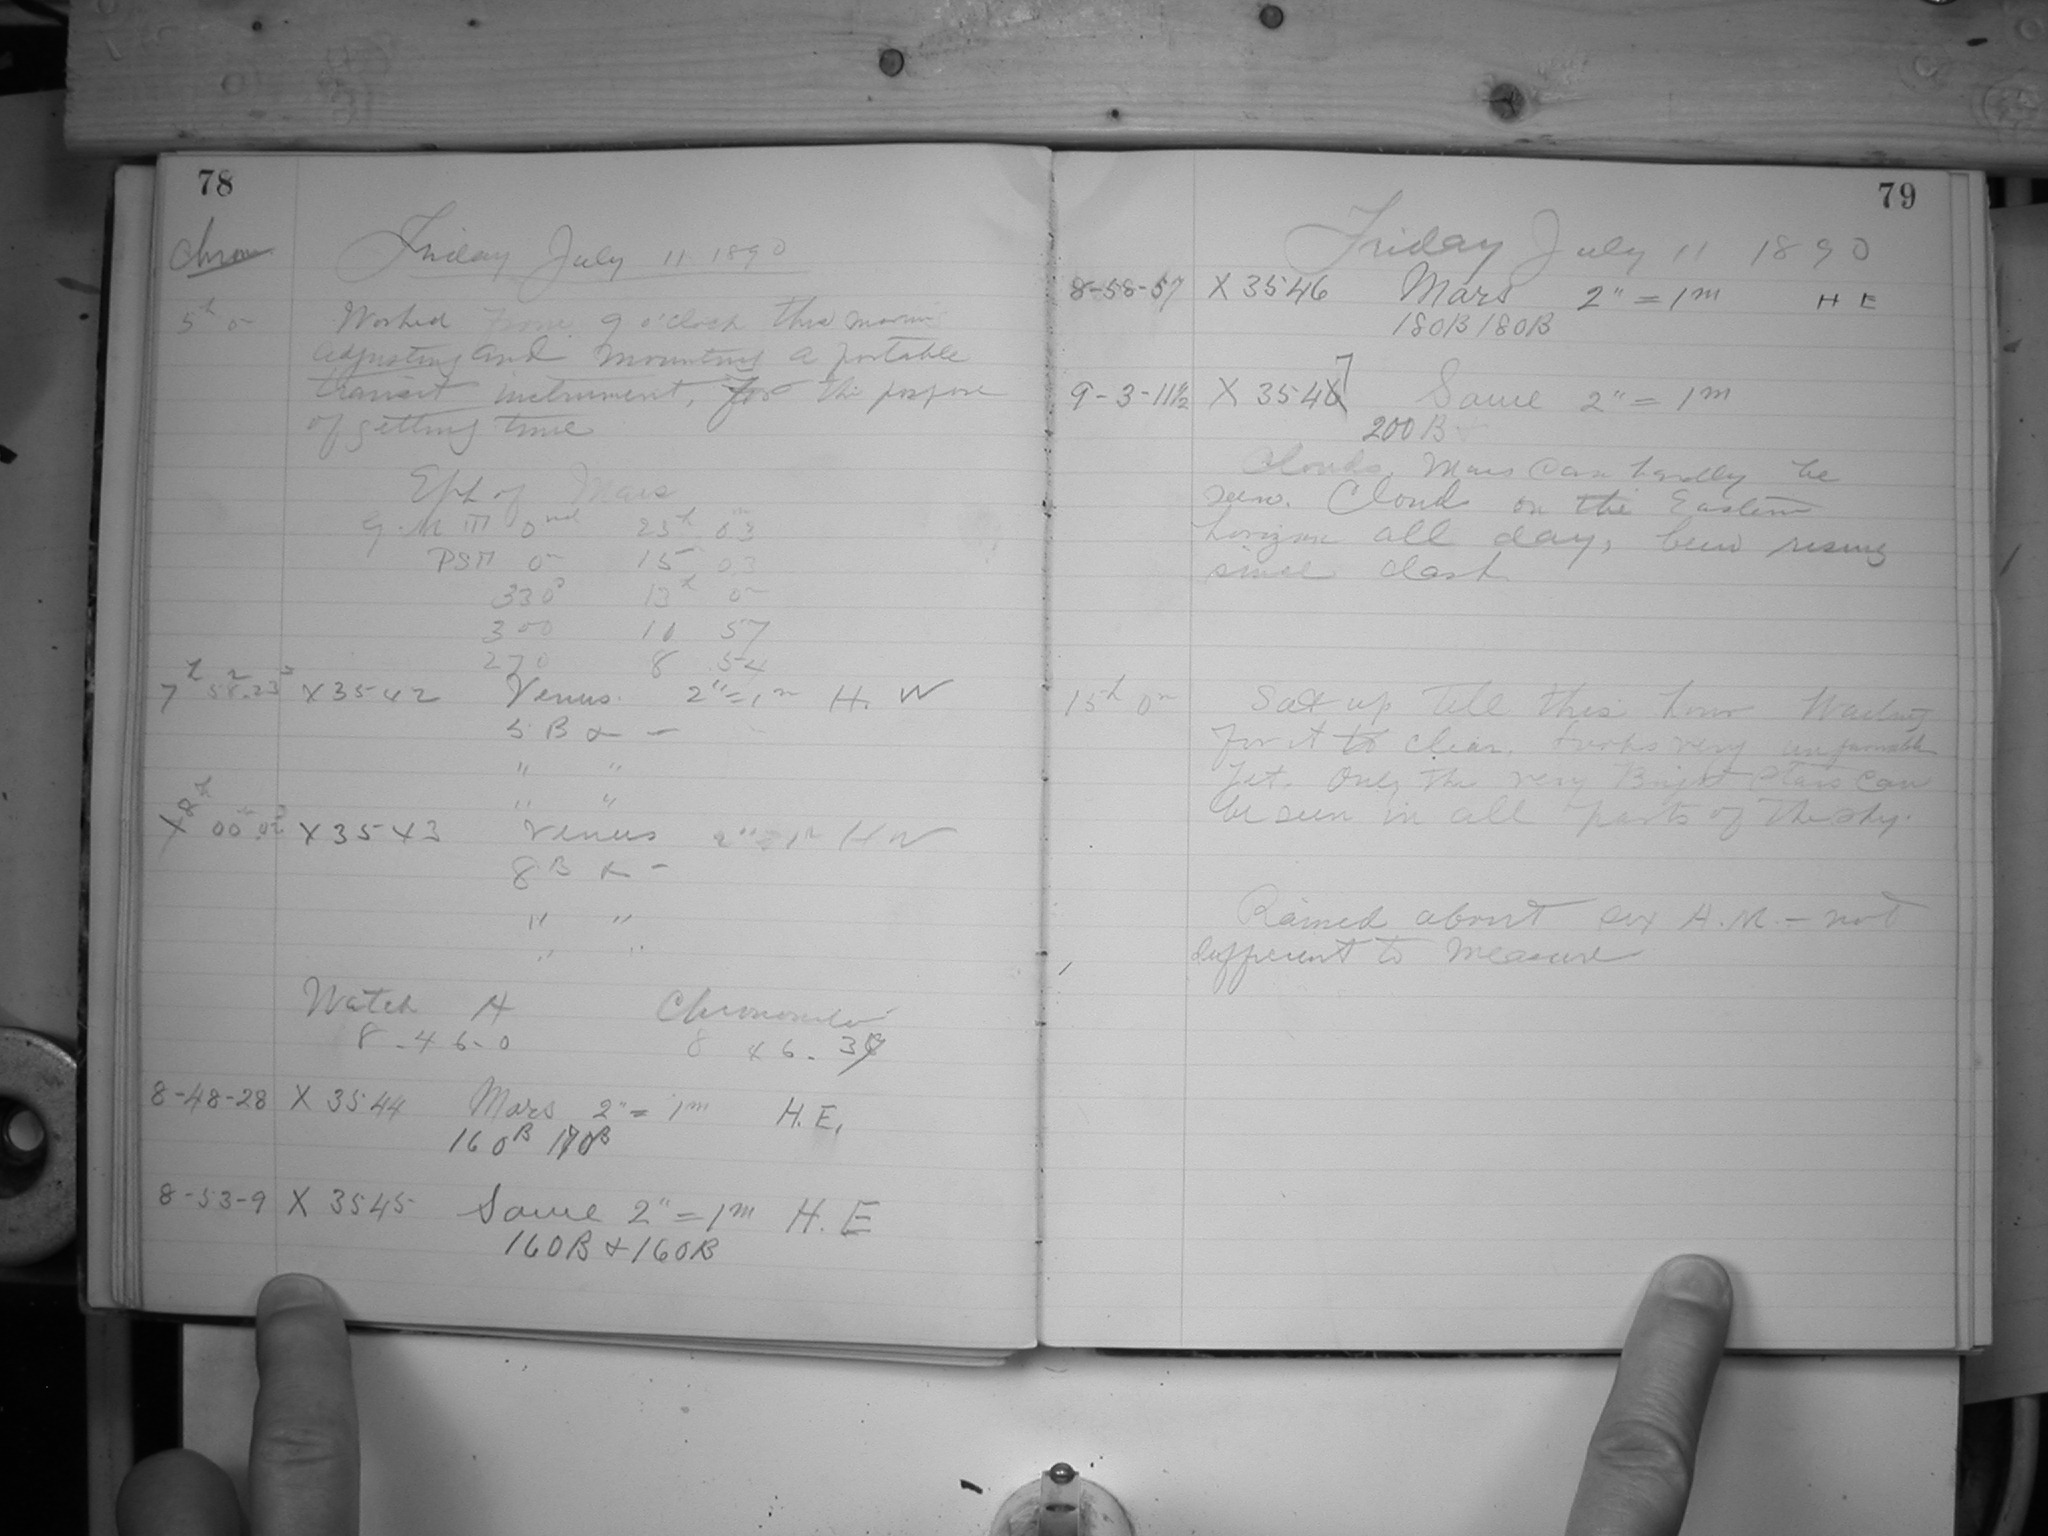 78
Chron
Friday July 11 1890
5h 0m Worked From 9 o'clock this morning
adjusting and mounting a portable
transit instrument, for the purpose
of getting time
Eph of Mars
G.M.T. 0 23h 03m
PST 0 15 03
330° 13h 0
300 10 57
270 8 54
7h 58m 23s X3542 Venus. 2"=1m H. W
5 B & -
" "
" "
8h 00m 02s X3543 Venus 2"=1m H W
8 B & -
" "
" "
Watch A Chronometer
8-46-0 8 46-39
8-48-28 X 3544 Mars 2"=1m H.E.
160B 170B
8-53-9 X 3545 Same 2"=1m H.E
160B & 160B
79
Friday July 11 1890
8-58-57 X 3546 Mars 2"=1m H E
180B 180B
9-3-11½ X 3547 Same 2"=1m
200B
Clouds. Mars can hardly be
seen. Cloud on the Eastern
horizon all day, been rising
since dark
15h 0m Sat up till this hour Waiting
for it to clear. Looks very unfavorable
yet. Only the very Bright stars can
be seen in all parts of the sky.
Rained about six A.M. - not
sufficient to measure